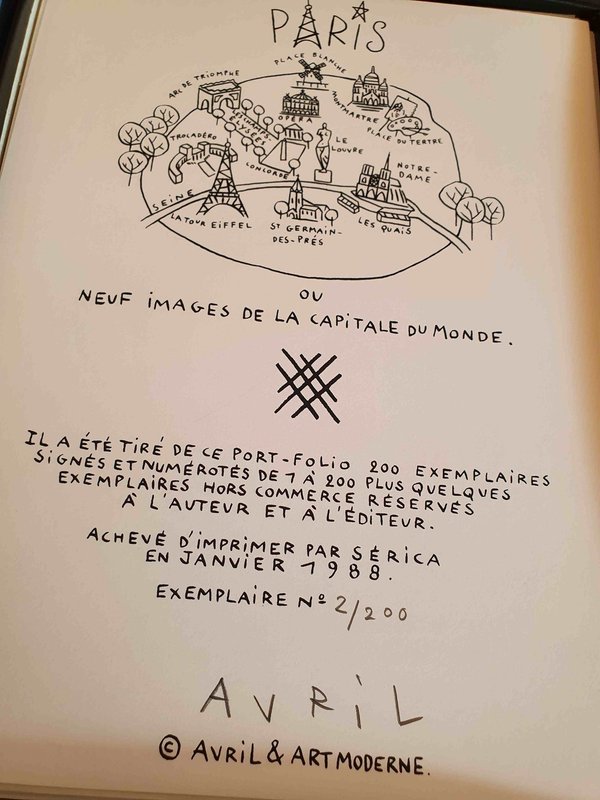 PARIS
PLACE BLANCHE
ARC DE TRIOMPHE
MONTMARTRE
OPÉRA
PLACE DU TERTRE
TROCADÉRO
CHAMPS ELYSÉES
LE LOUVRE
CONCORDE
NOTRE-
DAME
SEINE
LA TOUR EIFFEL
ST GERMAIN-
DES-PRÉS
LES QUAIS
OU
NEUF IMAGES DE LA CAPITALE DU MONDE.
IL A ÉTÉ TIRÉ DE CE PORT-FOLIO 200 EXEMPLAIRES
SIGNÉS ET NUMÉROTÉS DE 1 À 200 PLUS QUELQUES
EXEMPLAIRES HORS COMMERCE RÉSERVÉS
À L'AUTEUR ET À L'ÉDITEUR.
ACHEVÉ D'IMPRIMER PAR SÉRICA
EN JANVIER 1988.
EXEMPLAIRE Nº 2/200
AVRIL
© AVRIL & ART MODERNE.